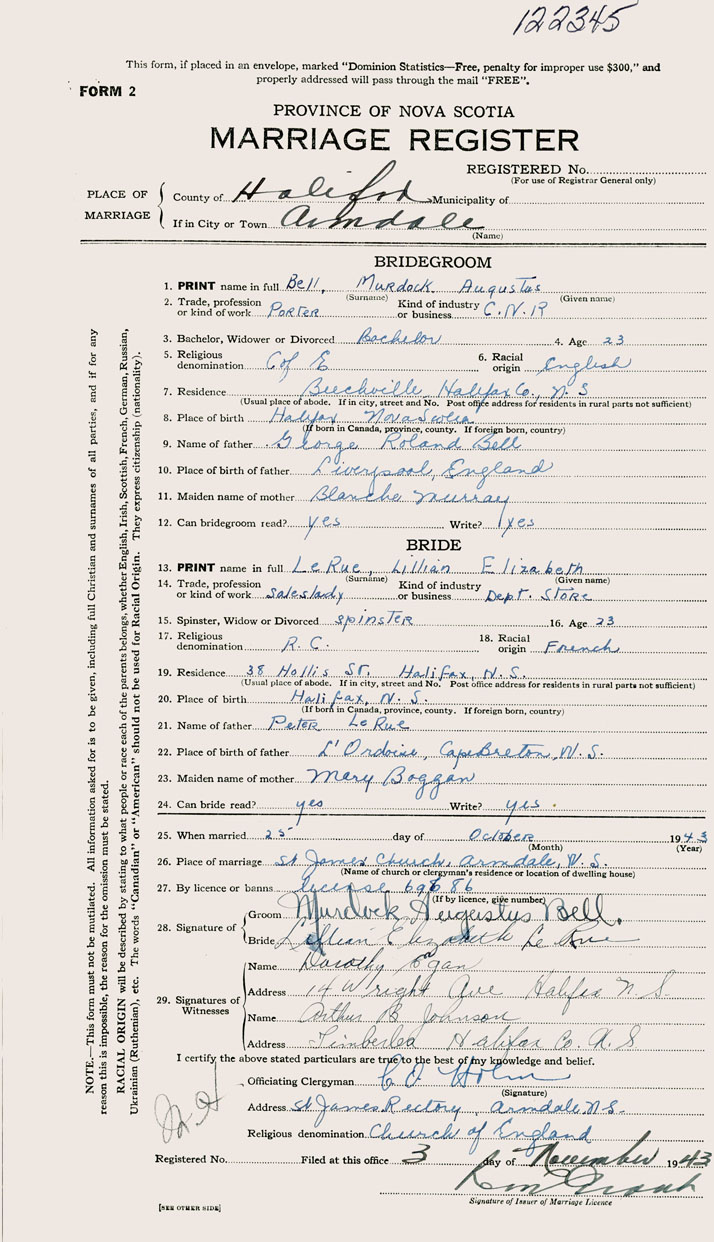 122345
This form, if placed in an envelope, marked "Dominion Statistics—Free, penalty for improper use $300," and
properly addressed will pass through the mail "FREE".
FORM 2
PROVINCE OF NOVA SCOTIA
MARRIAGE REGISTER
REGISTERED No.
(For use of Registrar General only)
PLACE OF MARRIAGE
County of Halifax Municipality of
If in City or Town Armdale
(Name)
BRIDEGROOM
1. PRINT name in full Bell, Murdock Augustus
(Surname) (Given name)
2. Trade, profession or kind of work Porter Kind of industry or business C.N.R
3. Bachelor, Widower or Divorced Bachelor 4. Age 23
5. Religious denomination C of E 6. Racial origin English
7. Residence Beechville Halifax Co., N S
(Usual place of abode. If in city, street and No. Post office address for residents in rural parts not sufficient)
8. Place of birth Halifax Nova Scotia
(If born in Canada, province, county. If foreign, country)
9. Name of father George Roland Bell
10. Place of birth of father Liverpool, England
11. Maiden name of mother Blanche Murray
12. Can bridegroom read? yes Write? yes
BRIDE
13. PRINT name in full LeRue, Lillian Elizabeth
(Surname) (Given name)
14. Trade, profession or kind of work Saleslady Kind of industry or business Dept. Store
15. Spinster, Widow or Divorced spinster 16. Age 23
17. Religious denomination R. C. 18. Racial origin French
19. Residence 38 Hollis St. Halifax, N.S.
(Usual place of abode. If in city, street and No. Post office address for residents in rural parts not sufficient)
20. Place of birth Halifax, N. S.
(If born in Canada, province, county. If foreign, country)
21. Name of father Peter LeRue
22. Place of birth of father L'Ordoise, Cape Breton, N. S.
23. Maiden name of mother Mary Boggan
24. Can bride read? yes Write? yes
25. When married 25 day of October 1943
(Month) (Year)
26. Place of marriage St James Church, Armdale, N. S.
(Name of church or clergyman's residence or location of dwelling house)
27. By licence or banns license 69686
(If by licence, give number)
28. Signature of
Groom Murdock Augustus Bell.
Bride Lillian Elizabeth Le Rue
29. Signatures of Witnesses
Name Dorothy Egan
Address 14 Wright Ave Halifax N S.
Name Arthur B Johnson
Address Timberlea Halifax Co. N. S
I certify the above stated particulars are true to the best of my knowledge and belief.
Officiating Clergyman
(Signature)
Address St James Rectory, Armdale N.S.
Religious denomination Church of England
Registered No. Filed at this office 3 day of November 1943
Signature of Issuer of Marriage Licence
[SEE OTHER SIDE]
NOTE.—This form must not be mutilated. All information asked for is to be given, including full Christian and surnames of all parties, and if for any
reason this is impossible, the reason for the omission must be stated.
RACIAL ORIGIN will be described by stating to what people or race each of the parents belongs, whether English, Irish, Scottish, French, German, Russian,
Ukrainian (Ruthenian), etc. The words "Canadian" or "American" should not be used for Racial Origin. They express citizenship (nationality).